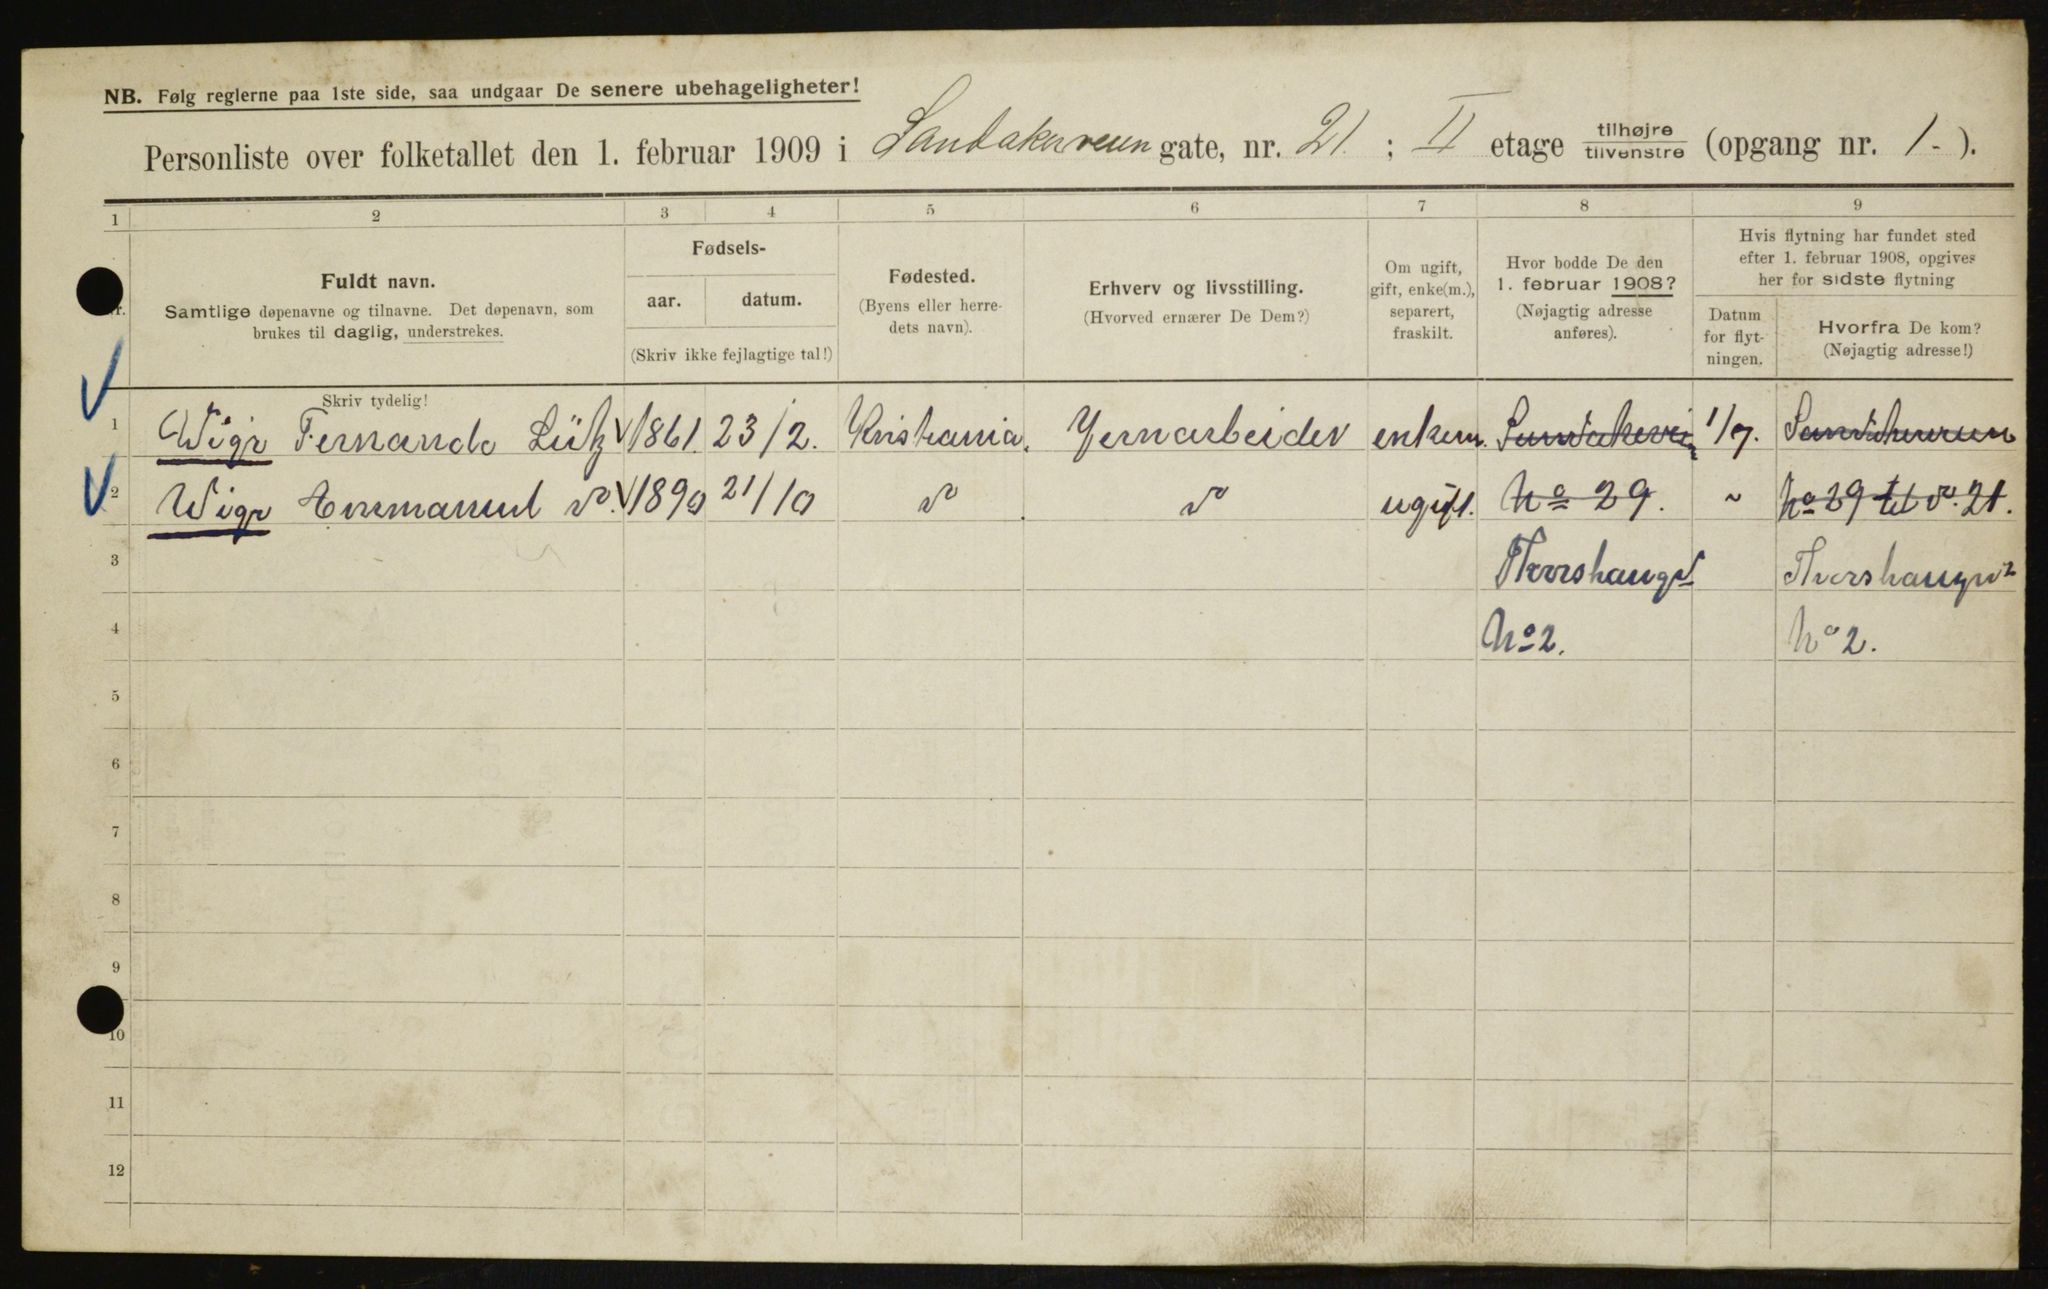 NB. Følg reglerne paa 1ste side, saa undgaar De senere ubehageligheter!
Personliste over folketallet den 1. februar 1909 i Sandakerveien gate, nr. 21. ; II etage tilhøjre tilvenstre (opgang nr. 1.- ).
1 2 3 4 5 6 7 8 9
Nr.
Fuldt navn.
Samtlige døpenavne og tilnavne. Det døpenavn, som
brukes til daglig, understrekes.
Skriv tydelig!
Fødsels-
aar. datum.
(Skriv ikke fejlagtige tal!)
Fødested.
(Byens eller herre-
dets navn).
Erhverv og livsstilling.
(Hvorved ernærer De Dem?)
Om ugift,
gift, enke(m.),
separert,
fraskilt.
Hvor bodde De den
1. februar 1908?
(Nøjagtig adresse
anføres).
Hvis flytning har fundet sted
efter 1. februar 1908, opgives
her for sidste flytning
Datum
for flyt-
ningen.
Hvorfra De kom?
(Nøjagtig adresse!)
1 Wigr Fernando Lütz 1861. 23/2. Kristiania. Yernarbeider enkem. Sandakervein 1/9. Sandakerveien
2 Wigr Emmanuel 1890 21/10 ugift. No 29. No 29 til 21.
3 Thorshaugv Thorshaugv
4 No 2. No 2.
5
6
7
8
9
10
11
12